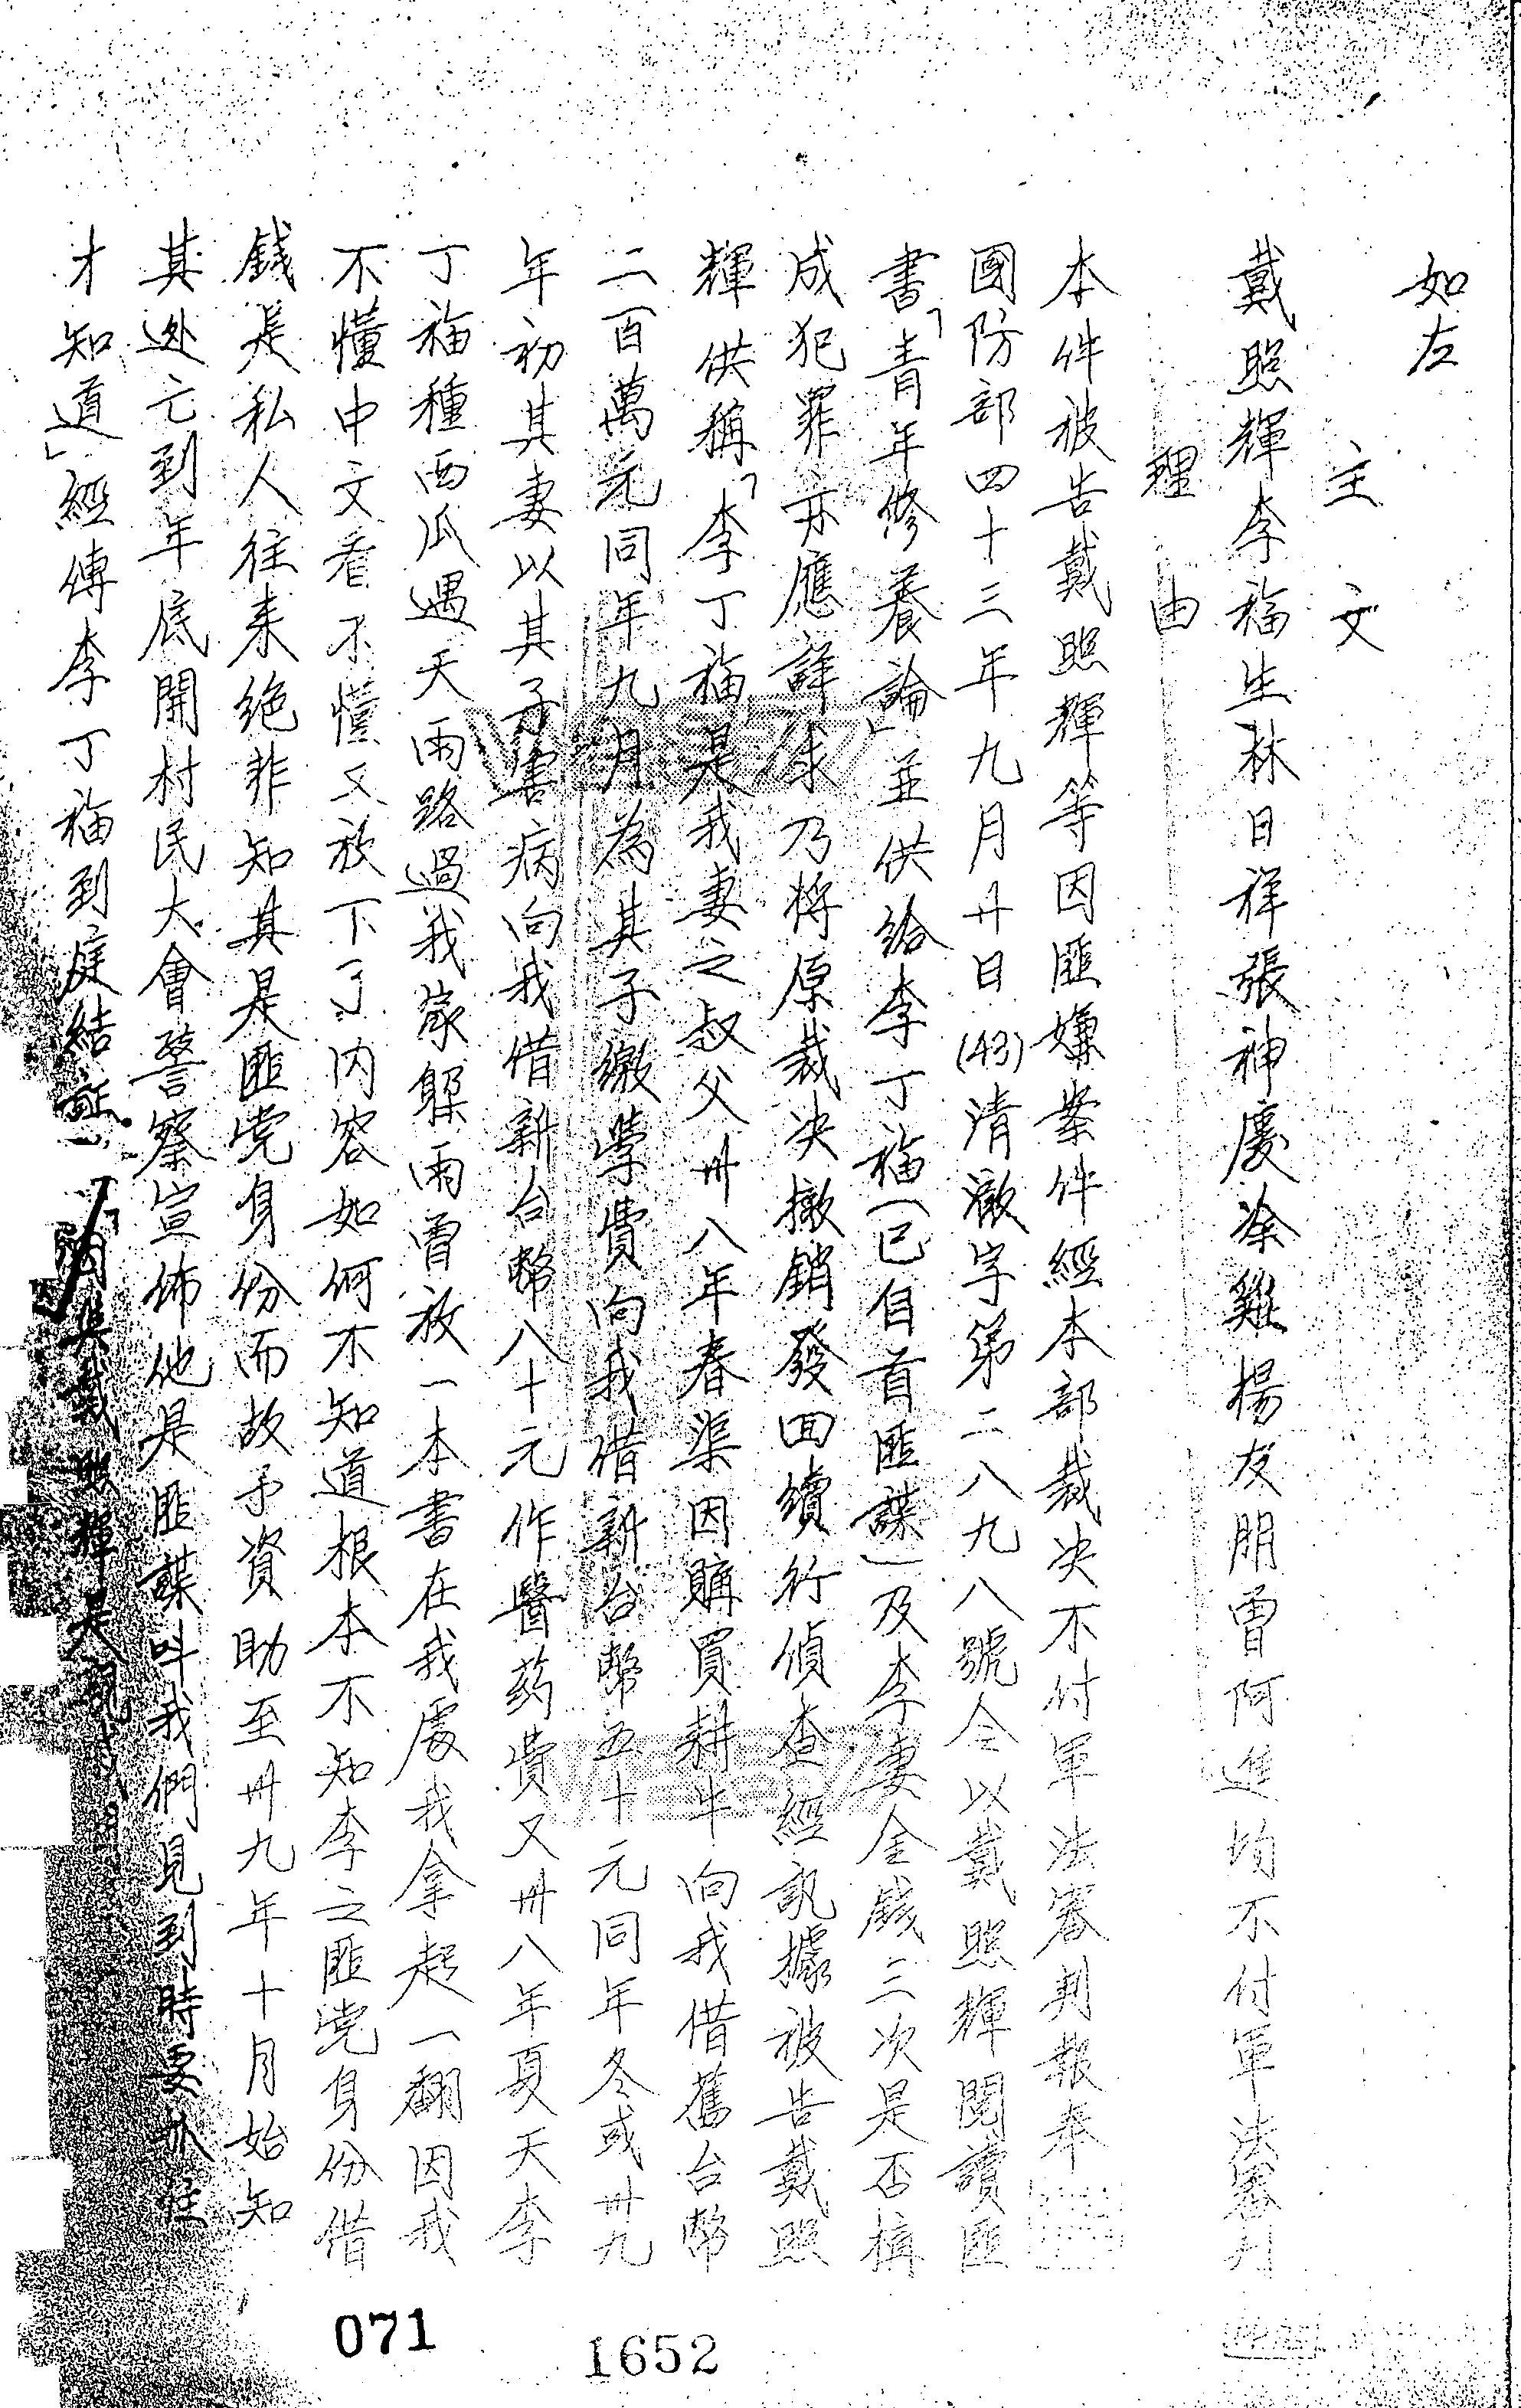 如左
主文
戴照輝李福生林日祥張神慶涂雞楊友朋曾阿進均不付軍法審判
理由
本件被告戴照輝等因匪嫌案件經本部裁決不付軍法審判報奉
國防部四十三年九月廿日(43)清澈字第二八九八號令以戴照輝閱讀匪
書「青年修養論」並供給李丁福(已自首匪諜)及李妻金錢三次是否構
成犯罪亦應詳求乃將原裁決撤銷發回續行偵查經訊據被告戴照
輝供稱「李丁福是我妻之叔父卅八年春渠因購買耕牛向我借舊台幣
二百萬元同年九月為其子繳學費向我借新台幣五十元同年冬或卅九
年初其妻以其子害病向我借新台幣八十元作醫药費又卅八年夏天李
丁福種西瓜遇天雨路過我家躲雨曾放一本書在我處我拿起一翻因我
不懂中文看不懂又放下了內容如何不知道根本不知李之匪党身份借
錢是私人往来绝非知其是匪党身份而故予資助至卅九年十月始知
其逃亡到年底開村民大會警察宣佈他是匪諜叫我們見到時要抓住
才知道」經傳李丁福到庭結証「我與戴照輝是親戚
071
1652